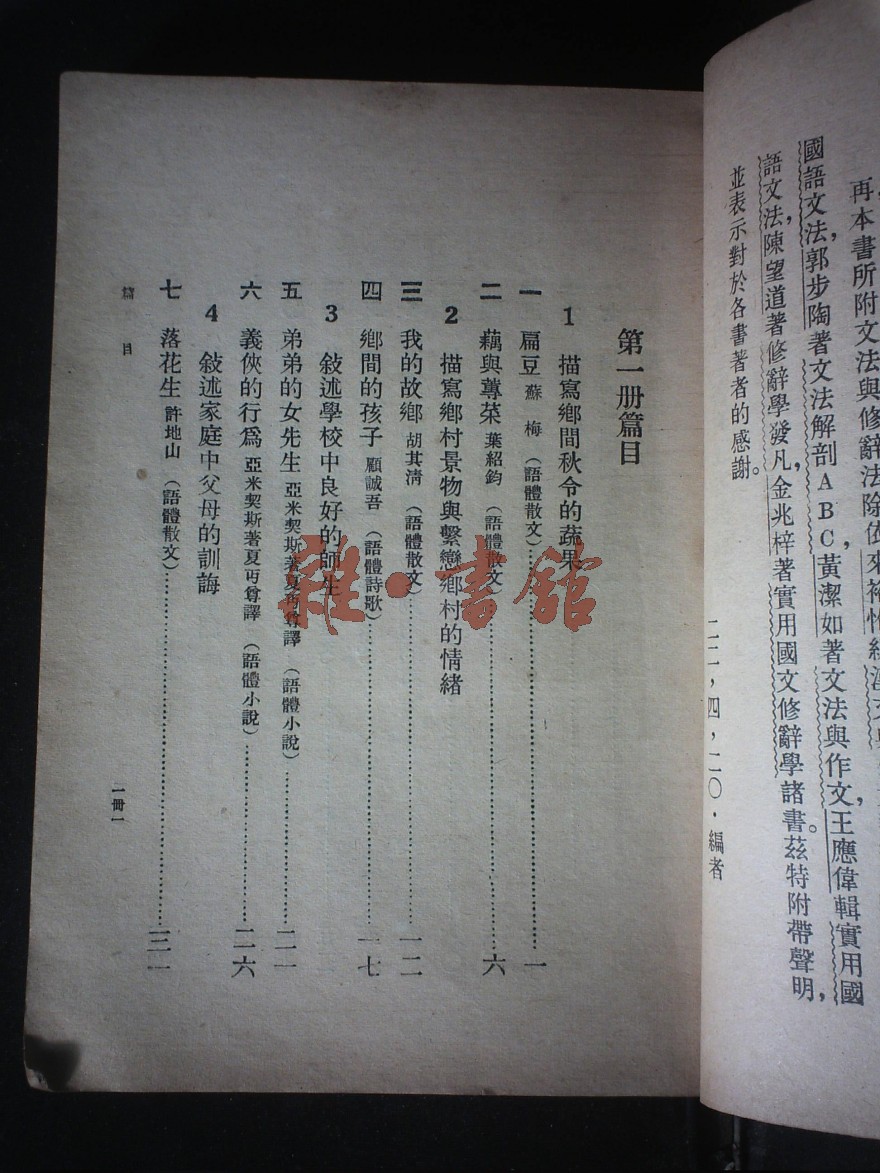 再本書所附文法與修辭法除依來裕恂
國語文法，郭步陶著文法解剖ABC，黃潔如著文法與作文，王應偉輯實用國
語文法，陳望道著修辭學發凡，金兆梓著實用國文修辭學諸書。茲特附帶聲明，
並表示對於各書著者的感謝。
二一，四，二〇．編者
第一册篇目
1 描寫鄉間秋令的蔬果
一 扁豆 蘇梅（語體散文）……一
二 藕與蓴菜 葉紹鈞（語體散文）……六
2 描寫鄉村景物與繫戀鄉村的情緒
三 我的故鄉 胡其清（語體散文）……一二
四 鄉間的孩子 顧誠吾（語體詩歌）……一七
3 敍述學校中良好的師生
五 弟弟的女先生 亞米契斯著夏丏尊譯（語體小說）……二一
六 義俠的行爲 亞米契斯著夏丏尊譯（語體小說）……二六
4 敍述家庭中父母的訓誨
七 落花生 許地山（語體散文）……三一
篇目
一冊一
雜·書館